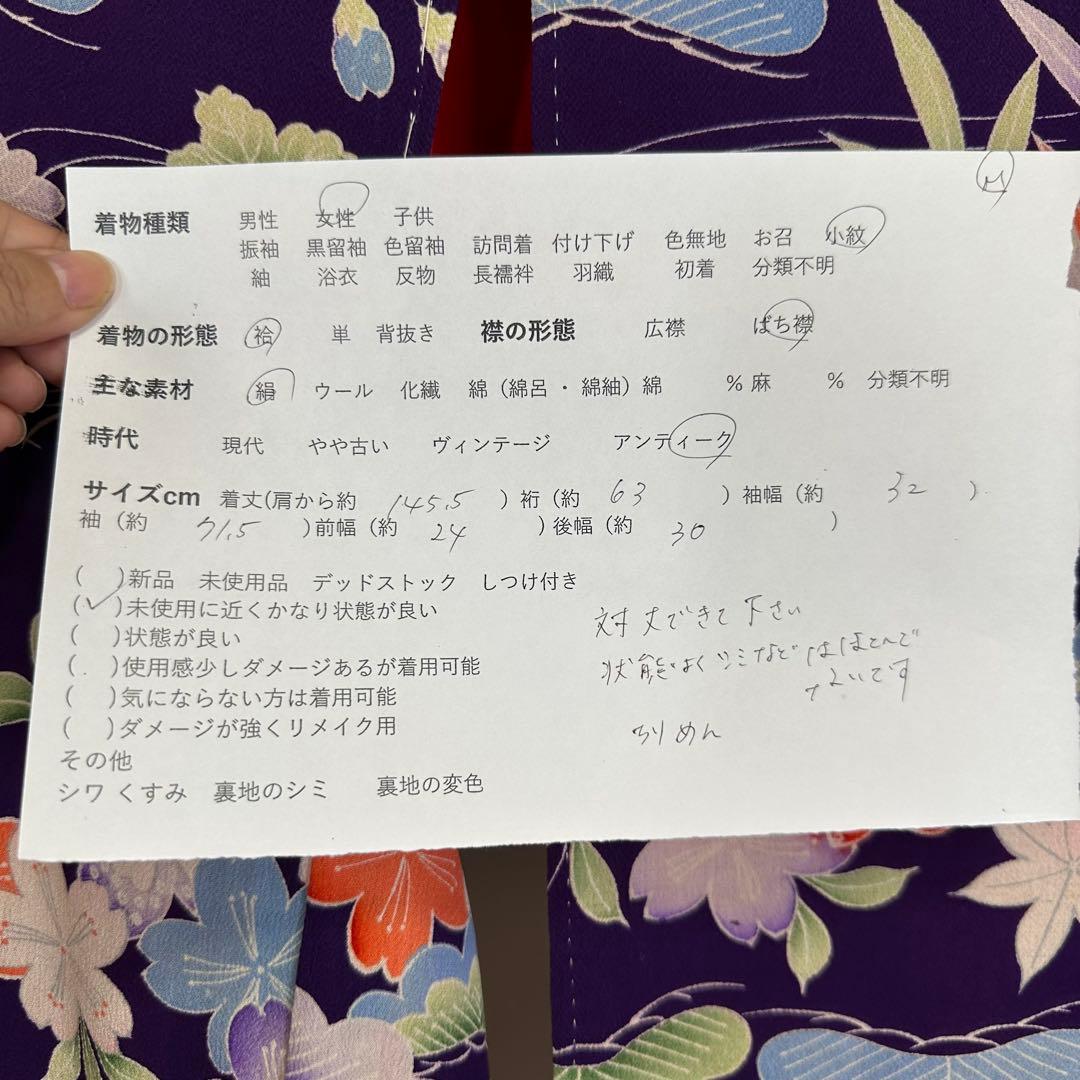 着物種類 男性 女性 子供
振袖 黒留袖 色留袖 訪問着 付け下げ 色無地 お召 小紋
紬 浴衣 反物 長襦袢 羽織 初着 分類不明
着物の形態 袷 単 背抜き 襟の形態 広襟 ばち襟
主な素材 絹 ウール 化繊 綿（綿呂・綿紬）綿 % 麻 % 分類不明
時代 現代 やや古い ヴィンテージ アンティーク
サイズcm 着丈(肩から約 145.5 ) 裄（約 63 ) 袖幅（約 32 )
袖（約 71.5 ) 前幅（約 24 ) 後幅（約 30 )
( )新品 未使用品 デッドストック しつけ付き
(✓)未使用に近くかなり状態が良い
( )状態が良い
( )使用感少しダメージあるが着用可能
( )気にならない方は着用可能
( )ダメージが強くリメイク用
その他
シワ くすみ 裏地のシミ 裏地の変色
対丈できて下さい
状態よく シミなど ほとんど
ないです
ちりめん